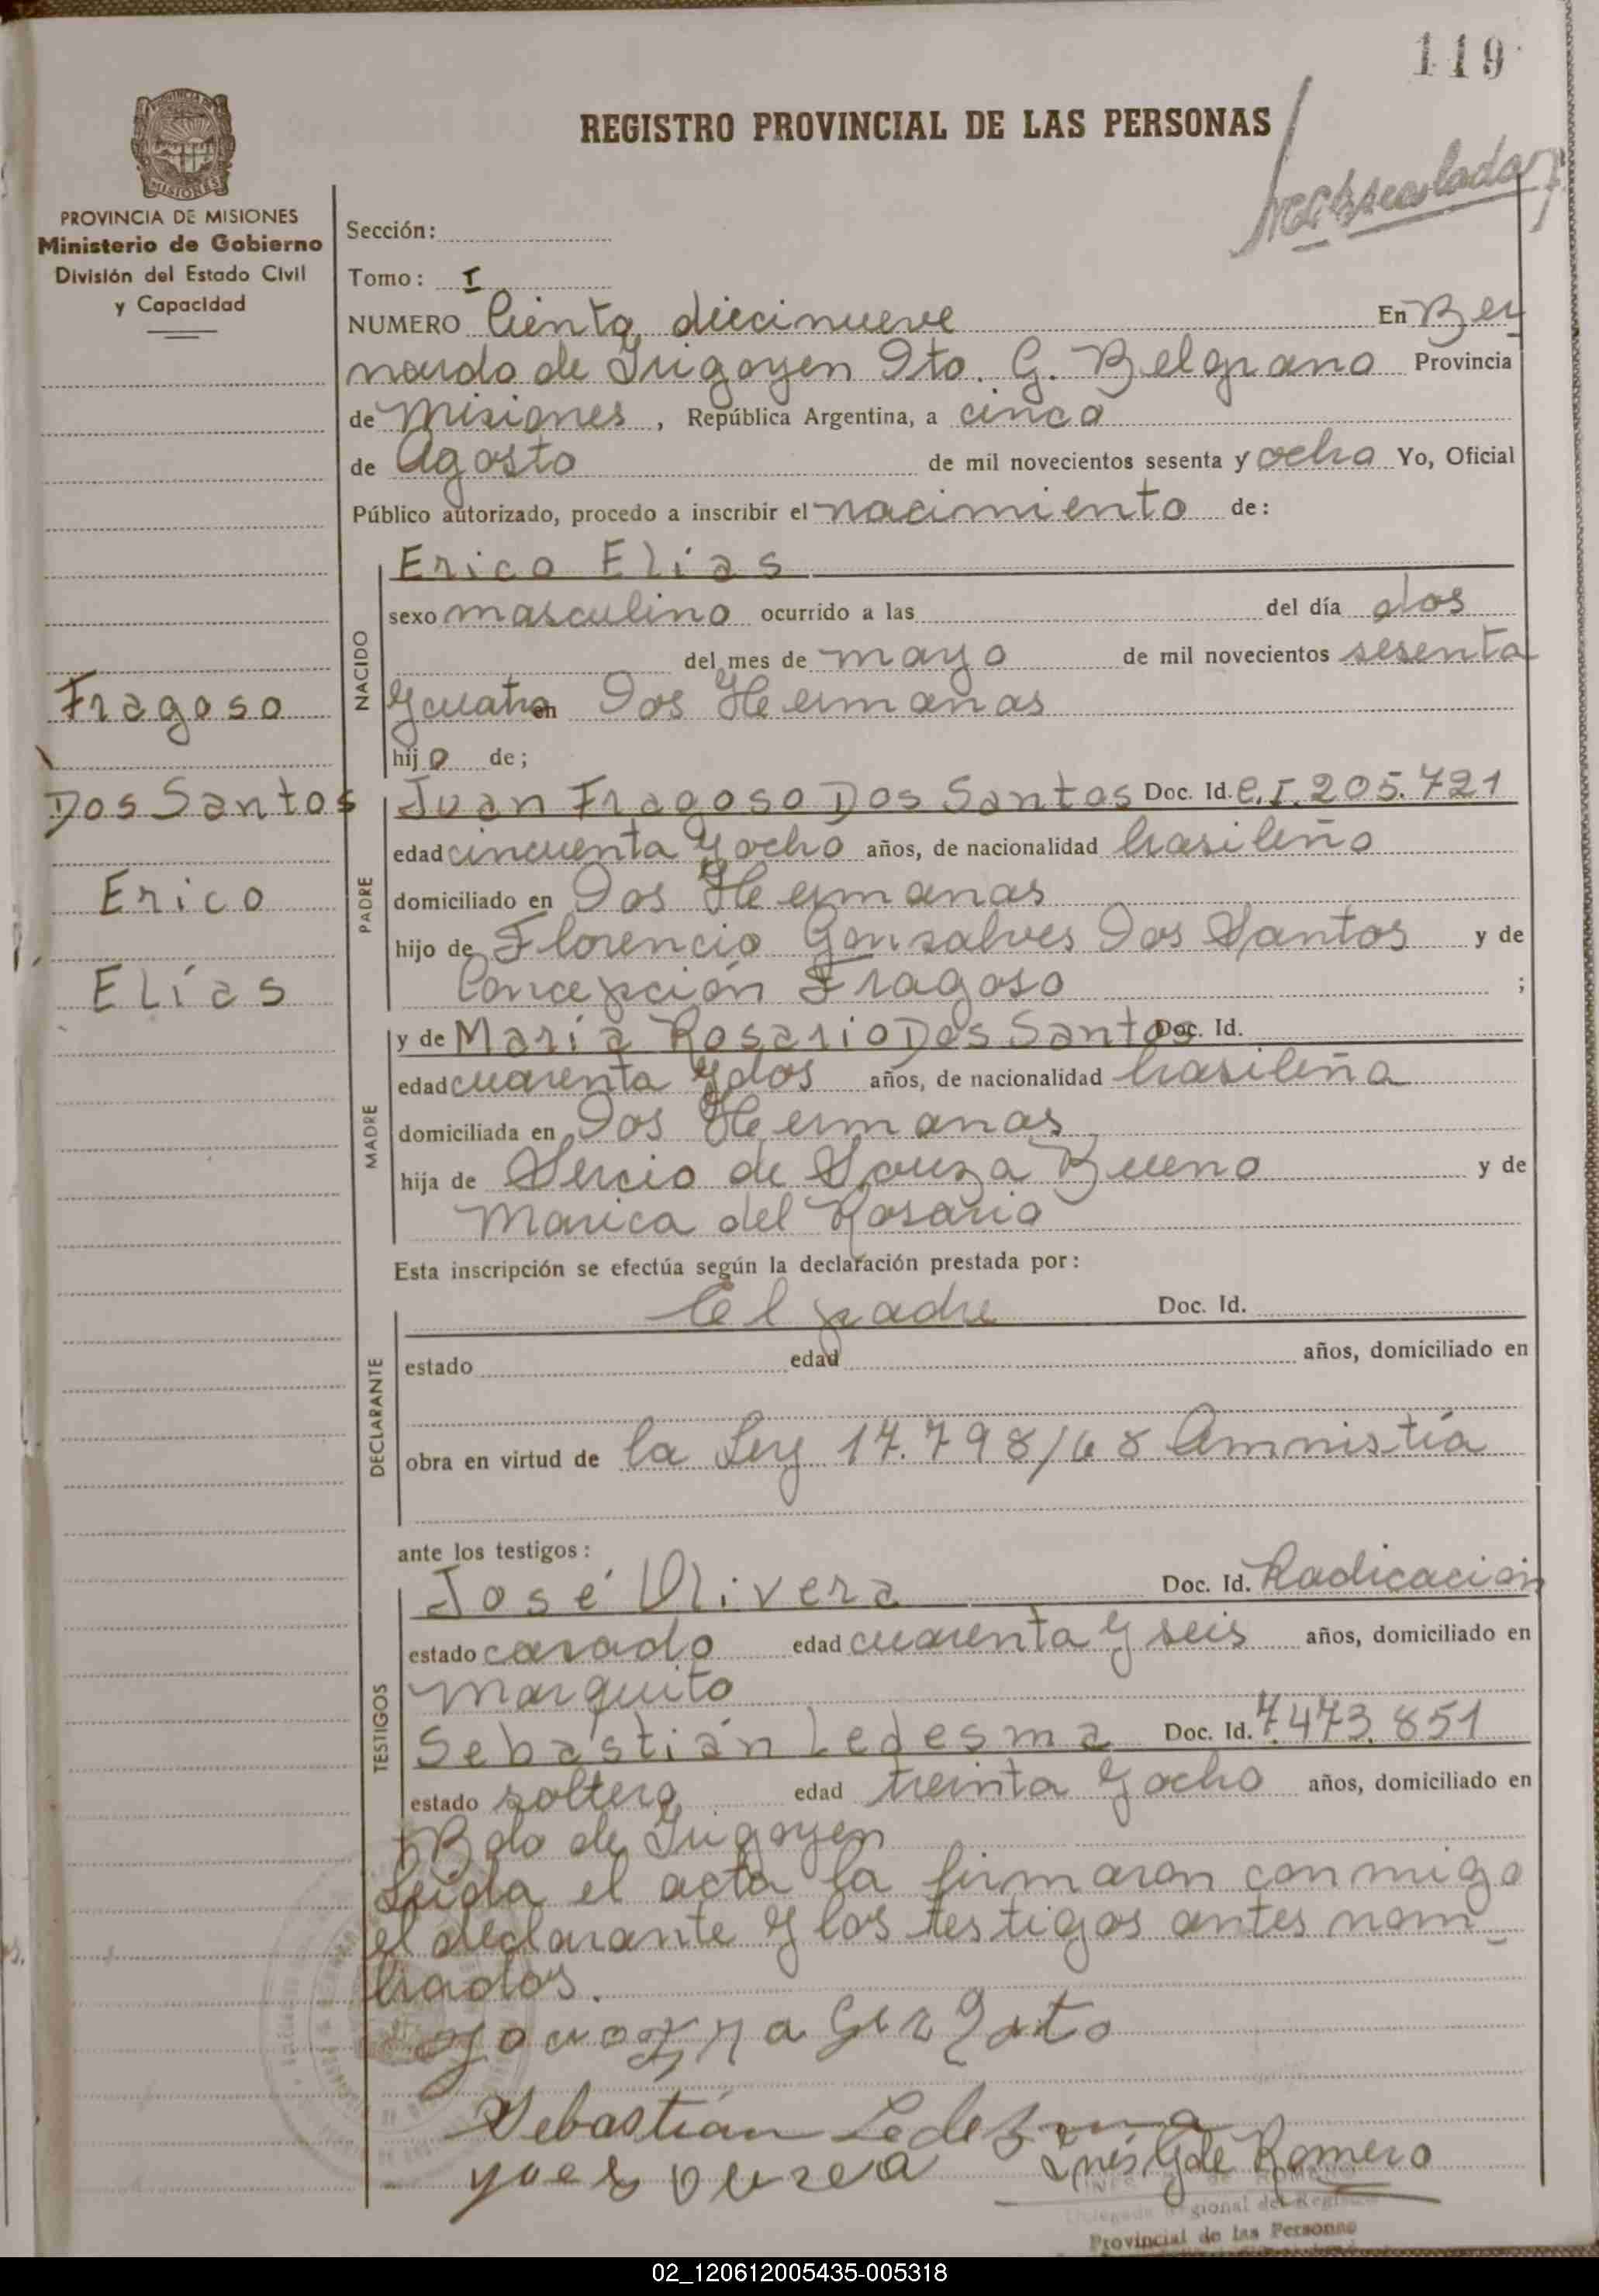 119
REGISTRO PROVINCIAL DE LAS PERSONAS
PROVINCIA DE MISIONES
Ministerio de Gobierno
División del Estado Civil
y Capacidad
Sección:
Tomo: I
NUMERO Ciento diecinueve En Ber
nardo de Irigoyen Dto. G. Belgrano Provincia
de Misiones, República Argentina, a cinco
de Agosto de mil novecientos sesenta y ocho Yo, Oficial
Público autorizado, procedo a inscribir el nacimiento de:
Fragoso
Dos Santos
Erico
Elías
NACIDO
Erico Elías
sexo masculino ocurrido a las del día dos
del mes de mayo de mil novecientos sesenta
y cuatro en Dos Hermanas
hijo de;
PADRE
Juan Fragoso Dos Santos Doc. Id. C.I. 205.721
edad cincuenta y ocho años, de nacionalidad brasileño
domiciliado en Dos Hermanas
hijo de Florencio Gonsalves Dos Santos y de
Concepción Fragoso ;
MADRE
y de María Rosario Dos Santos Doc. Id.
edad cuarenta y dos años, de nacionalidad brasileña
domiciliada en Dos Hermanas
hija de Sercio de Souza Bueno y de
Marica del Rosario
Esta inscripción se efectúa según la declaración prestada por:
DECLARANTE
El padre Doc. Id.
estado edad años, domiciliado en
obra en virtud de la Ley 17.798/68 Amnistía
ante los testigos:
TESTIGOS
José Olivera Doc. Id. Radicación
estado casado edad cuarenta y seis años, domiciliado en
Marquito
Sebastián Ledesma Doc. Id. 7.473.851
estado soltero edad treinta y ocho años, domiciliado en
Bdo de Irigoyen
Leida el acta la firmaron conmigo
el declarante y los testigos antes nom
brados.
Sebastián Ledesma
Inés G de Romero
Delegada Regional del Registro
Provincial de las Personas
02_120612005435-005318